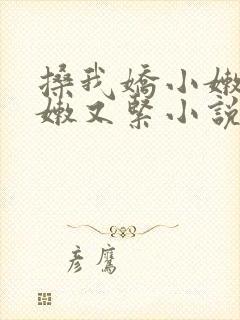 搡我嬌小嫩
嫩又緊小說
彥鷹